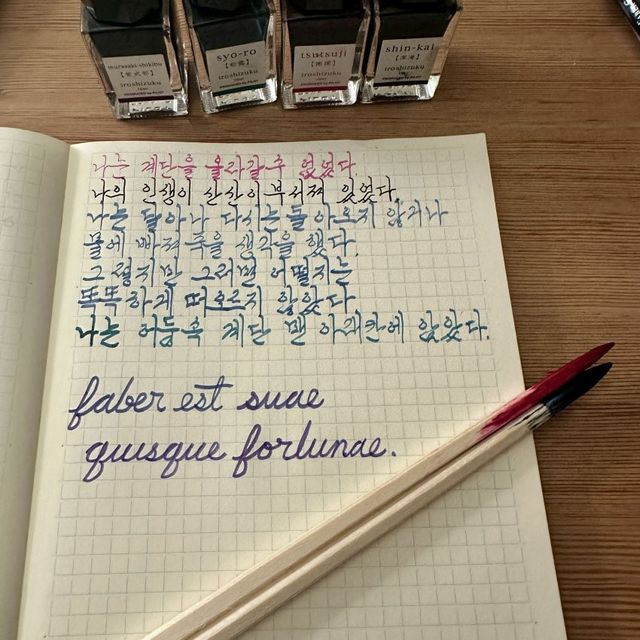 murasaki-shikibu
【紫式部】
iroshizuku
syo-ro
【松露】
iroshizuku
tsutsuji
【躑躅】
iroshizuku
shin-kai
【深海】
iroshizuku
나는 계단을 올라갈 수 없었다
나의 인생이 산산이 부서져 있었다.
나는 달아나 다시는 돌아오지 않거나
물에 빠져 죽을 생각을 했다.
그렇지만 그러면 어떨지는
똑똑하게 떠오르지 않았다
나는 어둠속 계단 맨 아래칸에 앉았다.
faber est suae
quisque fortunae.